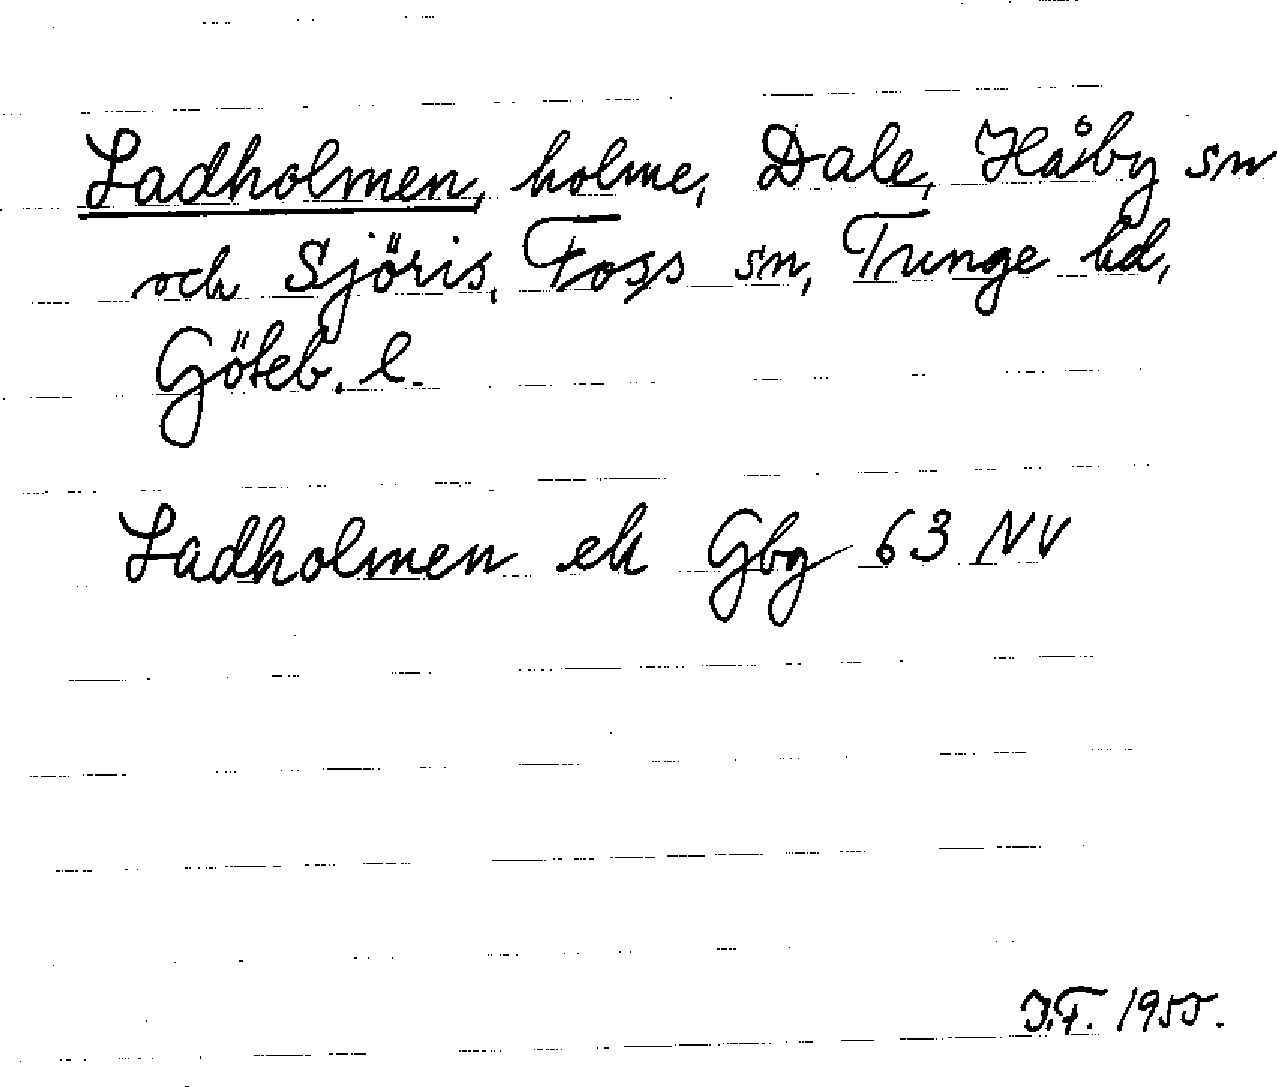 Ladholmen, holme, Dale, Håby sn
och Sjöris, Foss sn, Tunge hd,
Göteb. l.
Ladholmen ek Gbg 63 NV
J.F. 1955.